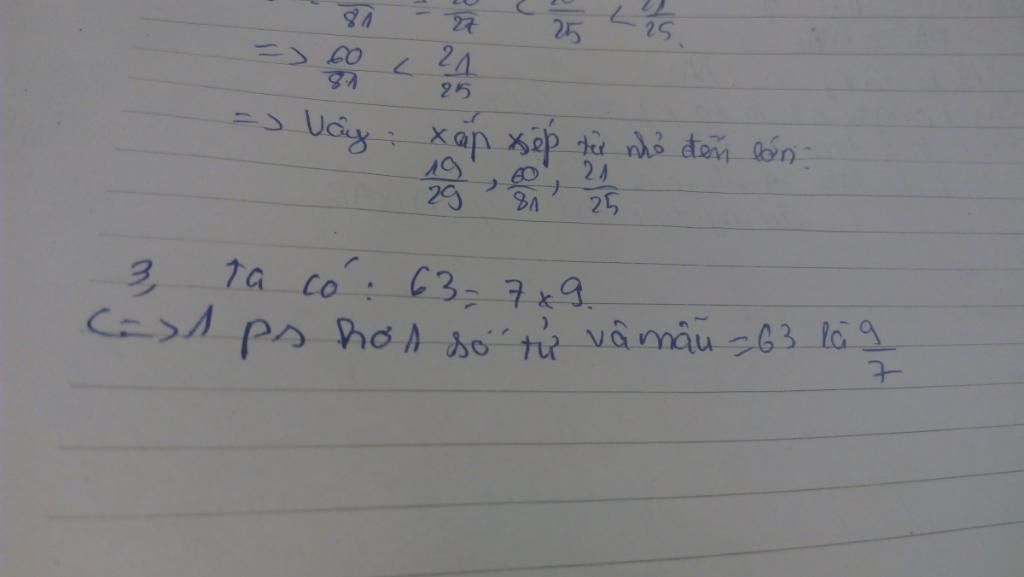 /81 = 20/27 < 20/25 < 21/25.
=> 60/81 < 21/25
=> Vây: xấp xếp từ nhỏ đến lớn:
19/29, 60/81, 21/25
3, Ta có: 63 = 7 x 9.
<=> 1 ps hơn 1 số tử và mẫu = 63 là 9/7